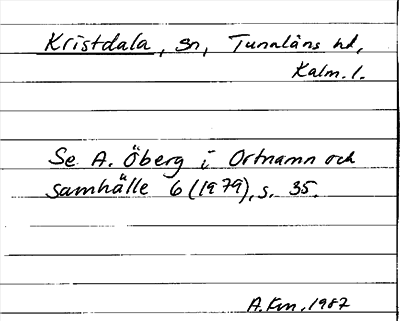 Kristdala, sn, Tunaläns hd,
Kalm. l.
Se A. Öberg i Ortnamn och
samhälle 6 (1979), s. 35.
1987